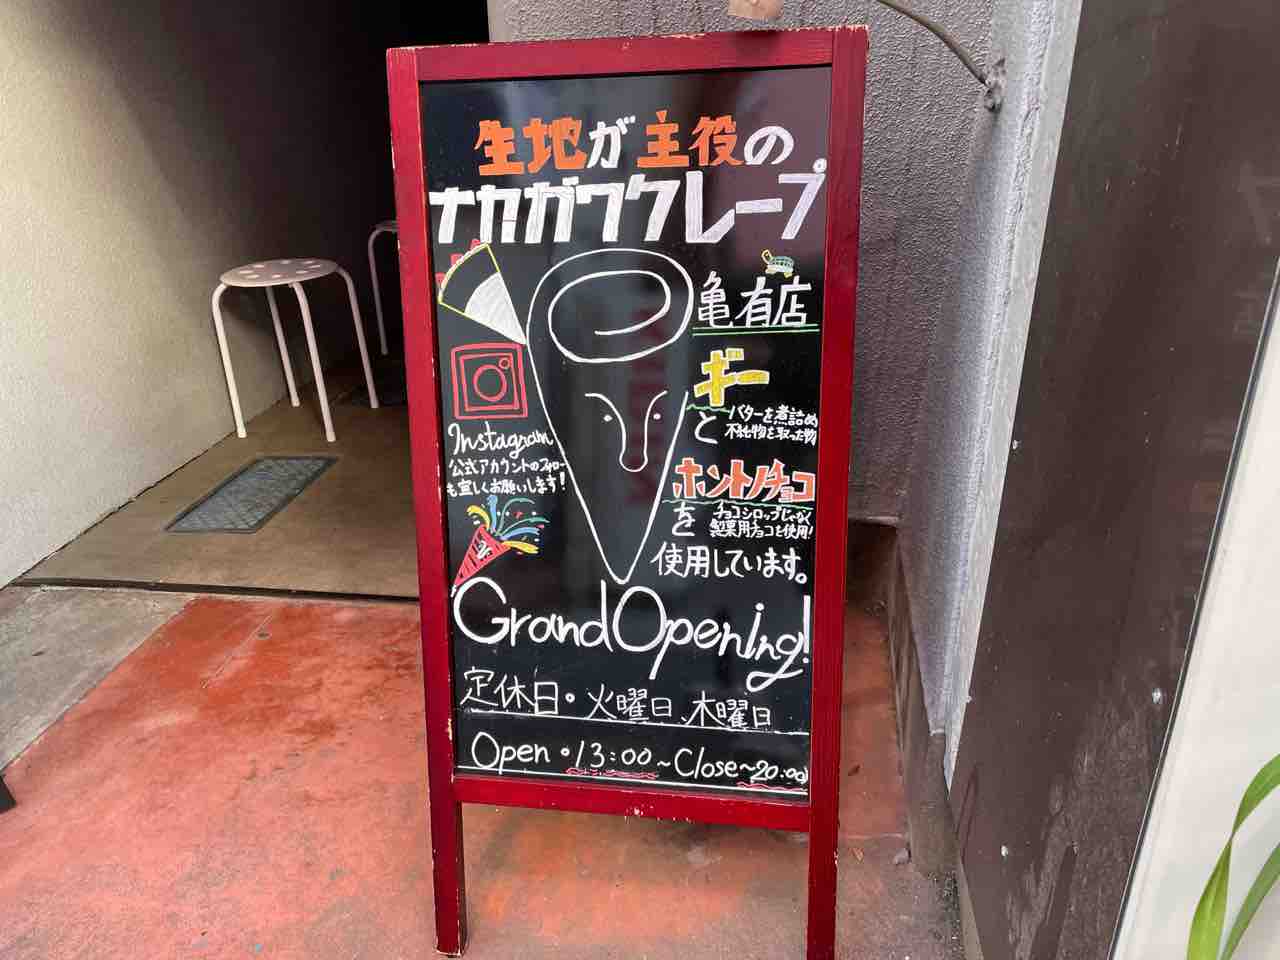 生地が主役の
ナカガワクレープ。
亀有店
ギー
と
バターを煮詰め
不純物を取った物
ホントノチョコ
を
チョコシロップじゃなく
製菓用チョコを使用!
使用しています。
Instagram
公式アカウントのフォロー
も宜しくお願いします!
Grand Opening!
定休日・火曜日、木曜日
Open・13:00~Close~20:00